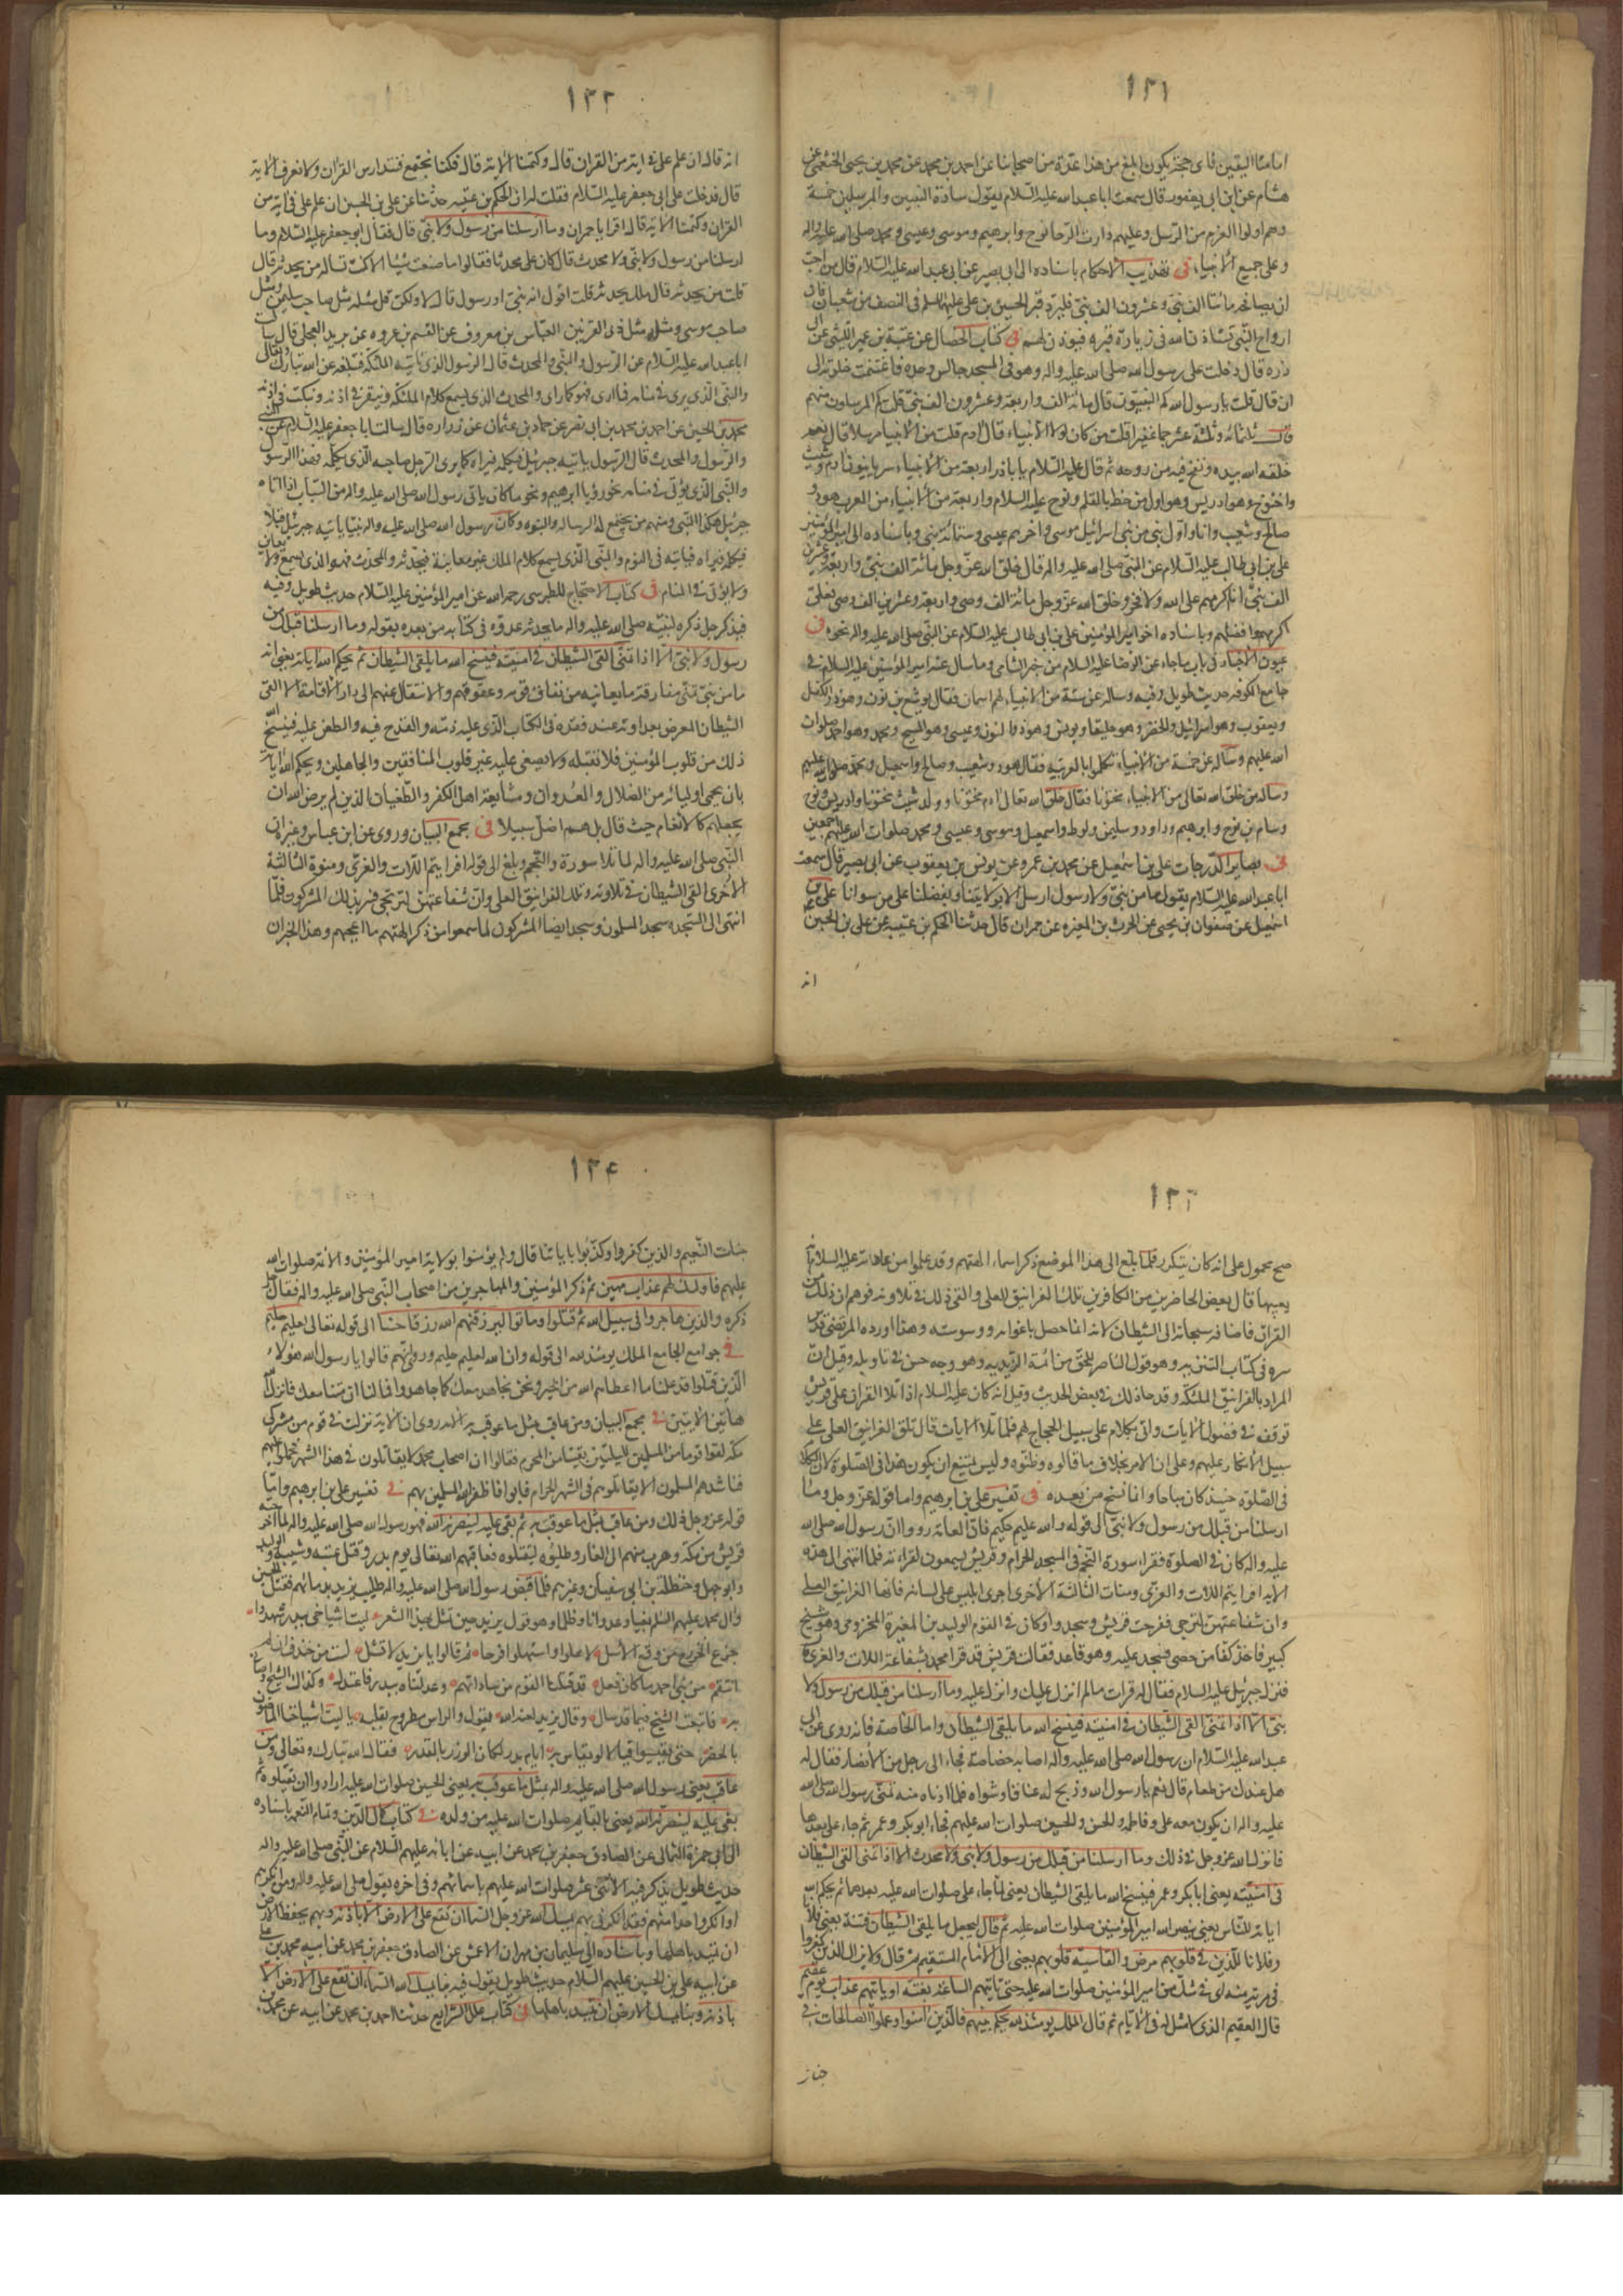 ١٣١
امامنا اليقين فاى حجة يكون ابلغ من هذا عدة من اصحابنا عن احمد بن محمد عن محمد بن يحيى الخثعمى عن
هشام عن ابن ابى يعفور قال سمعت ابا عبد الله عليه السلام يقول سادة النبيين والمرسلين خمسة
وهم اولوا العزم من الرسل وعليهم دارت الرحا نوح وابرهيم وموسى وعيسى ومحمد صلى الله عليه واله
وعلى جميع الانبياء فى تهذيب الاحكام باسناده الى ابى بصير عن ابى عبد الله عليه السلام قال من احب
ان يصافحه مائتا الف نبى وعشرون الف نبى فليزر قبر الحسين بن على عليهما السلم فى النصف من شعبان فان
ارواح النبيين تستاذن الله فى زيارة قبره فيوذن لهم فى كتاب الخصال عن عتبة بن عمير الليثى عن ابى
ذره قال دخلت على رسول الله صلى الله عليه واله وهو فى المسجد جالس وحده فاغتنمت خلوته الى
ان قال قلت يا رسول الله كم النبيون قال مائة الف واربعة وعشرون الف نبى قلت كم المرسلون منهم
قال ثلثمائه وثلثة عشر جما غفيرا قلت من كان اول الانبياء قال ادم قلت من الانبياء مرسلا قال نعم
خلقه الله بيده ونفخ فيه من روحه ثم قال عليه السلام يا باذر اربعة من الانبياء سريانيون ادم وشيث
واخنوخ وهو ادريس وهو اول من خط بالقلم ونوح عليه السلام واربعة من الانبياء من العرب هود و
صالح وشعيب وانا واول نبى من بنى اسرائيل موسى واخرهم عيسى وستمائة نبى وباسناده الى امير المؤمنين
على بن ابى طالب عليه السلام عن النبى صلى الله عليه واله قال خلق الله عز وجل مائة الف نبى واربعة وعشرين
الف نبى انا اكرمهم على الله ولا فخر وخلق الله عز وجل مائة الف وصى واربعة وعشرين الف وصى فعلى
اكرمهم وافضلهم وباسناده اخر امير المؤمنين على بن ابى طالب عليه السلام عن النبى صلى الله عليه واله نحوه فى
عيون الاخبار فى باب ما جاء عن الرضا عليه السلام من خبر الشامى وما سال عنه امير المؤمنين عليه السلام فى
جامع الكوفه حديث طويل وفيه وساله عن ستة من الانبياء لهم اسمان فقال يوشع بن نون وهو ذو الكفل
ويعقوب وهو اسرائيل والخضر وهو حليقا ويونس وهو ذو النون وعيسى وهو المسيح ومحمد وهو احمد صلوات
الله عليهم وساله عن خمسة من الانبياء تكلموا بالعربيه فقال هود وشعيب وصالح واسمعيل ومحمد صلى الله عليهم
وساله من خلق الله تعالى من الانبياء مختونا فقال خلق الله تعالى ادم مختونا وولد شيث مختونا وادريس ونوح
وسام بن نوح وابرهيم وداود وسليمن ولوط واسمعيل وموسى وعيسى ومحمد صلوات الله عليهم اجمعين
فى بصاير الدرجات على بن اسمعيل عن محمد بن عمرو عن يونس بن يعقوب عن ابى بصير قال سمعت
ابا عبد الله عليه السلام يقول ما من نبى ولا رسول ارسل الا بولايتنا وبفضلنا على من سوانا على بن
اسمعيل عن صفوان بن يحيى عن الحرث بن المغيره عن حمران قال حدثنا الحكم بن عتيبه عن على بن الحسين
انه
١٣٢
انه قال ان علم على فى اية من القران قال وكتمنا الاية قال فكنا نجتمع فنتدارس القران ولا نعرف الاية
قال فدخلت على ابى جعفر عليه السلام فقلت له ان الحكم بن عتيبه حدثنا عن على بن الحسين ان علم على فى اية من
القران وكتمنا الاية قال اقرا يا حمران وما ارسلنا من رسول ولا نبى قال فقال ابو جعفر عليه السلام وما
ارسلنا من رسول ولا نبى ولا محدث قال كان على محدثا فقالوا ما صنعت شيئا الا كنت تساله من يحدثه قال
قلت من يحدثه قال ملك يحدثه قلت اقول انه نبى او رسول قال لا ولكن قل مثله مثل صاحب سليمن ومثل
صاحب موسى ومثله مثل ذى القرنين العباس بن معروف عن القسم بن عروه عن بريد العجلى قال سالت
ابا عبد الله عليه السلام عن الرسول والنبى والمحدث قال الرسول الذى تاتيه الملئكة فتبلغه عن الله تبارك وتعالى
والنبى الذى يرى فى منامه فما راى فهو كما راى والمحدث الذى يسمع كلام الملئكة وينقر فى اذنه وينكت فى اذنه
محمد بن الحسين عن احمد بن محمد بن ابى نصر عن حماد بن عثمان عن زراره قال سالت ابا جعفر عليه السلام عن النبى
والرسول والمحدث قال الرسول ياتيه جبرئيل فيكلمه فيراه كما يرى الرجل صاحبه الذى يكلمه فهذا الرسول
والنبى الذى يؤتى فى منامه نحو رؤيا ابرهيم ونحو ما كان ياتى رسول الله صلى الله عليه واله من السبات اذا اتاه
جبرئيل هكذا النبى ومنهم من يجتمع له الرساله والنبوه وكان رسول الله صلى الله عليه واله نبيا ياتيه جبرئيل قبلا
فيكلمه فيراه فياتيه فى النوم والنبى الذى يسمع كلام الملك غير معاينة فيحدثه والمحدث فهو الذى يسمع ولا يعاين
ولا يؤتى فى المنام فى كتاب الاحتجاج للطبرسى رحمه الله عن امير المؤمنين عليه السلام حديث طويل وفيه
فيذكر جل ذكره لنبيه صلى الله عليه واله ما يحدثه عدوه فى كتابه من بعده بقوله وما ارسلنا قبلك من
رسول ولا نبى الا اذا تمنى القى الشيطان فى امنيته فينسخ الله ما يلقى الشيطان ثم يحكم الله اياته يعنى انه
ما من نبى تمنى مفارقة ما يعانيه من نفاق قومه وعقوقهم والانتقال عنهم الى دار الاقامة الا القى
الشيطان المعرض بعداوته عند فقده فى الكتاب الذى عليه ذمه والقدح فيه والطعن عليه فينسخ
ذلك من قلوب المؤمنين فلا تقبله ولا تصغى عليه غير قلوب المنافقين والجاهلين ويحكم الله اياته
بان يحمى اوليائه من الضلال والعدوان ومشايعة اهل الكفر والطغيان الذين لم يرض الله ان
يجعلهم كالانعام حيث قال بل هم اضل سبيلا فى مجمع البيان وروى عن ابن عباس وغيره ان
النبى صلى الله عليه واله لما تلا سورة والنجم وبلغ الى قوله افرايتم اللات والعزى ومنوة الثالثة
الاخرى القى الشيطان فى تلاوته وتلك الغرانيق العلى وان شفاعتهن لترتجى فسر بذلك المشركون فلما
انتهى الى السجدة سجد المسلمون وسجد ايضا المشركون لما سمعوا من ذكر الهتهم ما اعجبهم وهذا الخبر ان
١٣٣
صح محمول على انه كان يتكرر فلما بلغ الى هذا الموضع ذكر اسماء الهتهم وقد علموا من عادته عليه السلام انه
يعيبها قال بعض الحاضرين من الكافرين تلك الغرانيق العلى والقى ذلك فى تلاوته فوهم ان ذلك من
القران فاضافه سبحانه الى الشيطان لانه انما حصل باغوائه ووسوسته وهذا اورده المرتضى قدس
سره فى كتاب التنزيه وهو قول الناصر للحق من ائمة الزيديه وهو وجه حسن فى تاويله وقيل ان
المراد بالغرانيق الملئكة وقد جاء ذلك فى بعض الحديث وقيل انه كان عليه السلام اذا تلا القران على قريش
توقف فى فصول الايات واتى بكلام على سبيل الحجاج لهم فلما تلا الايات قال تلك الغرانيق العلى على
سبيل الانكار عليهم وعلى ان الامر بخلاف ما قالوه وظنوه وليس يمتنع ان يكون هذا فى الصلوة لان الكلام
فى الصلوة حينئذ كان مباحا وانما نسخ من بعده فى تفسير على بن ابرهيم واما قوله عز وجل وما
ارسلنا من قبلك من رسول ولا نبى الى قوله والله عليم حكيم فان العامة رووا ان رسول الله صلى الله
عليه واله كان فى الصلوة فقرا سورة النجم فى المسجد الحرام وقريش يسمعون لقراءته فلما انتهى الى هذه
الاية افرايتم اللات والعزى ومنات الثالثة الاخرى اجرى ابليس على لسانه فانها الغرانيق العلى
وان شفاعتهن لترتجى ففرحت قريش وسجدوا وكان فى القوم الوليد بن المغيرة المخزومى وهو شيخ
كبير فاخذ كفا من حصى فسجد عليه وهو قاعد فقالت قريش قد اقر محمد بشفاعة اللات والعزى قال
فنزل جبرئيل عليه السلام فقال له قرات ما لم انزل عليك وانزل عليه وما ارسلنا من قبلك من رسول ولا
نبى الا اذا تمنى القى الشيطان فى امنيته فينسخ الله ما يلقى الشيطان واما الخاصة فانه روى عن ابى
عبد الله عليه السلام ان رسول الله صلى الله عليه واله اصابه خصاصة فجاء الى رجل من الانصار فقال له
هل عندك من طعام قال نعم يا رسول الله وذبح له عناقا وشواه فلما ادناه منه تمنى رسول الله صلى الله
عليه واله ان يكون معه على وفاطمه والحسن والحسين صلوات الله عليهم فجاء ابو بكر وعمر ثم جاء على بعدهما
فانزل الله عز وجل فى ذلك وما ارسلنا من قبلك من رسول ولا نبى ولا محدث الا اذا تمنى القى الشيطان
فى امنيته يعنى ابا بكر وعمر فينسخ الله ما يلقى الشيطان يعنى لما جاء على صلوات الله عليه بعدهما ثم يحكم الله
اياته للناس يعنى ينصر الله امير المؤمنين صلوات الله عليه ثم قال ليجعل ما يلقى الشيطان فتنة يعنى فلانا
وفلانا للذين فى قلوبهم مرض والقاسية قلوبهم يعنى الى الامام المستقيم ثم قال ولا يزال الذين كفروا
فى مرية منه اى فى شك من امير المؤمنين صلوات الله عليه حتى تاتيهم الساعة بغتة او ياتيهم عذاب يوم عقيم
قال العقيم الذى لا مثل له فى الايام ثم قال الملك يومئذ لله يحكم بينهم فالذين امنوا وعملوا الصالحات فى
جنات
١٣٤
جنات النعيم والذين كفروا وكذبوا باياتنا قال ولم يؤمنوا بولاية امير المؤمنين والائمة صلوات الله
عليهم فاولئك لهم عذاب مهين ثم ذكر المؤمنين والمهاجرين من اصحاب النبى صلى الله عليه واله فقال جل
ذكره والذين هاجروا فى سبيل الله ثم قتلوا او ماتوا ليرزقنهم الله رزقا حسنا الى قوله تعالى لعليم حليم
فى جوامع الجامع الملك يومئذ لله الى قوله وان الله لعليم حليم وروى انهم قالوا يا رسول الله هؤلاء
الذين قتلوا قد علمنا ما اعطاهم الله من الخير ونحن نجاهد معك كما جاهدوا فما لنا ان متنا معك فانزل الله
هاتين الايتين فى مجمع البيان ومن عاقب بمثل ما عوقب به الاية روى ان الاية نزلت فى قوم من مشركى
مكه لقوا قوما من المسلمين لليلتين بقيتا من المحرم فقالوا ان اصحاب محمد لا يقاتلون فى هذا الشهر فحملوا عليهم
فناشدهم المسلمون الا يقاتلوهم فى الشهر الحرام فابوا فاظفر الله المسلمين بهم فى تفسير على بن ابرهيم واما
قوله عز وجل ذلك ومن عاقب بمثل ما عوقب به ثم بغى عليه لينصرنه الله فهو رسول الله صلى الله عليه واله لما اخرجته
قريش من مكه وهرب منهم الى الغار وطلبوه ليقتلوه فعاقبهم الله تعالى يوم بدر وقتل عتبه وشيبه والوليد
وابو جهل وحنظلة بن ابى سفيان وغيرهم فلما قبض رسول الله صلى الله عليه واله طلب يزيد بدمائهم فقتل الحسين
وال محمد عليهم السلم بغيا وعدوانا وظلما وهو قول يزيد حين تمثل بهذا الشعر ليت اشياخى ببدر شهدوا
جزع الخزرج من وقع الاسل لاهلوا واستهلوا فرحا ثم قالوا يا يزيد لا تشل لست من خندف ان لم
انتقم من بنى احمد ما كان فعل قد قتلنا القوم من ساداتهم وعدلناه ببدر فاعتدل وكذاك الشيخ اوصانى
به فاتبعت الشيخ فيما قد سال وقال يزيد لعنه الله يقول والراس مطروح يقلبه يا ليت اشياخنا الماضون
بالحضر حتى يقيسوا قياسا لا يقاس به ايام بدر لكان الوزن بالقدر فقال الله تبارك وتعالى ومن
عاقب يعنى رسول الله صلى الله عليه واله بمثل ما عوقب به يعنى الحسين صلوات الله عليه ارادوا ان يقتلوه ثم
بغى عليه لينصرنه الله يعنى بالقايم صلوات الله عليه من ولده فى كتاب كمال الدين وتمام النعمه باسناده
الى ابى حمزة الثمالى عن الصادق جعفر بن محمد عن ابيه عن ابائه عليهم السلام عن النبى صلى الله عليه واله
حديث طويل يذكر فيه الاثنى عشر صلوات الله عليهم باسمائهم وفى اخره يقول صلى الله عليه واله ومن انكرهم
او انكر واحدا منهم فقد انكرنى بهم يمسك الله عز وجل السماء ان تقع على الارض الا باذنه وبهم يحفظ الارض
ان تميد باهلها وباسناده الى سليمان بن مهران الاعمش عن الصادق جعفر بن محمد عن ابيه محمد بن على
عن ابيه على بن الحسين عليهم السلام حديث طويل يقول فيه بنا يمسك الله السماء ان تقع على الارض الا
باذنه وبنا يمسك الارض ان تميد باهلها فى كتاب علل الشرايع حدثنا احمد بن محمد عن ابيه عن محمد بن